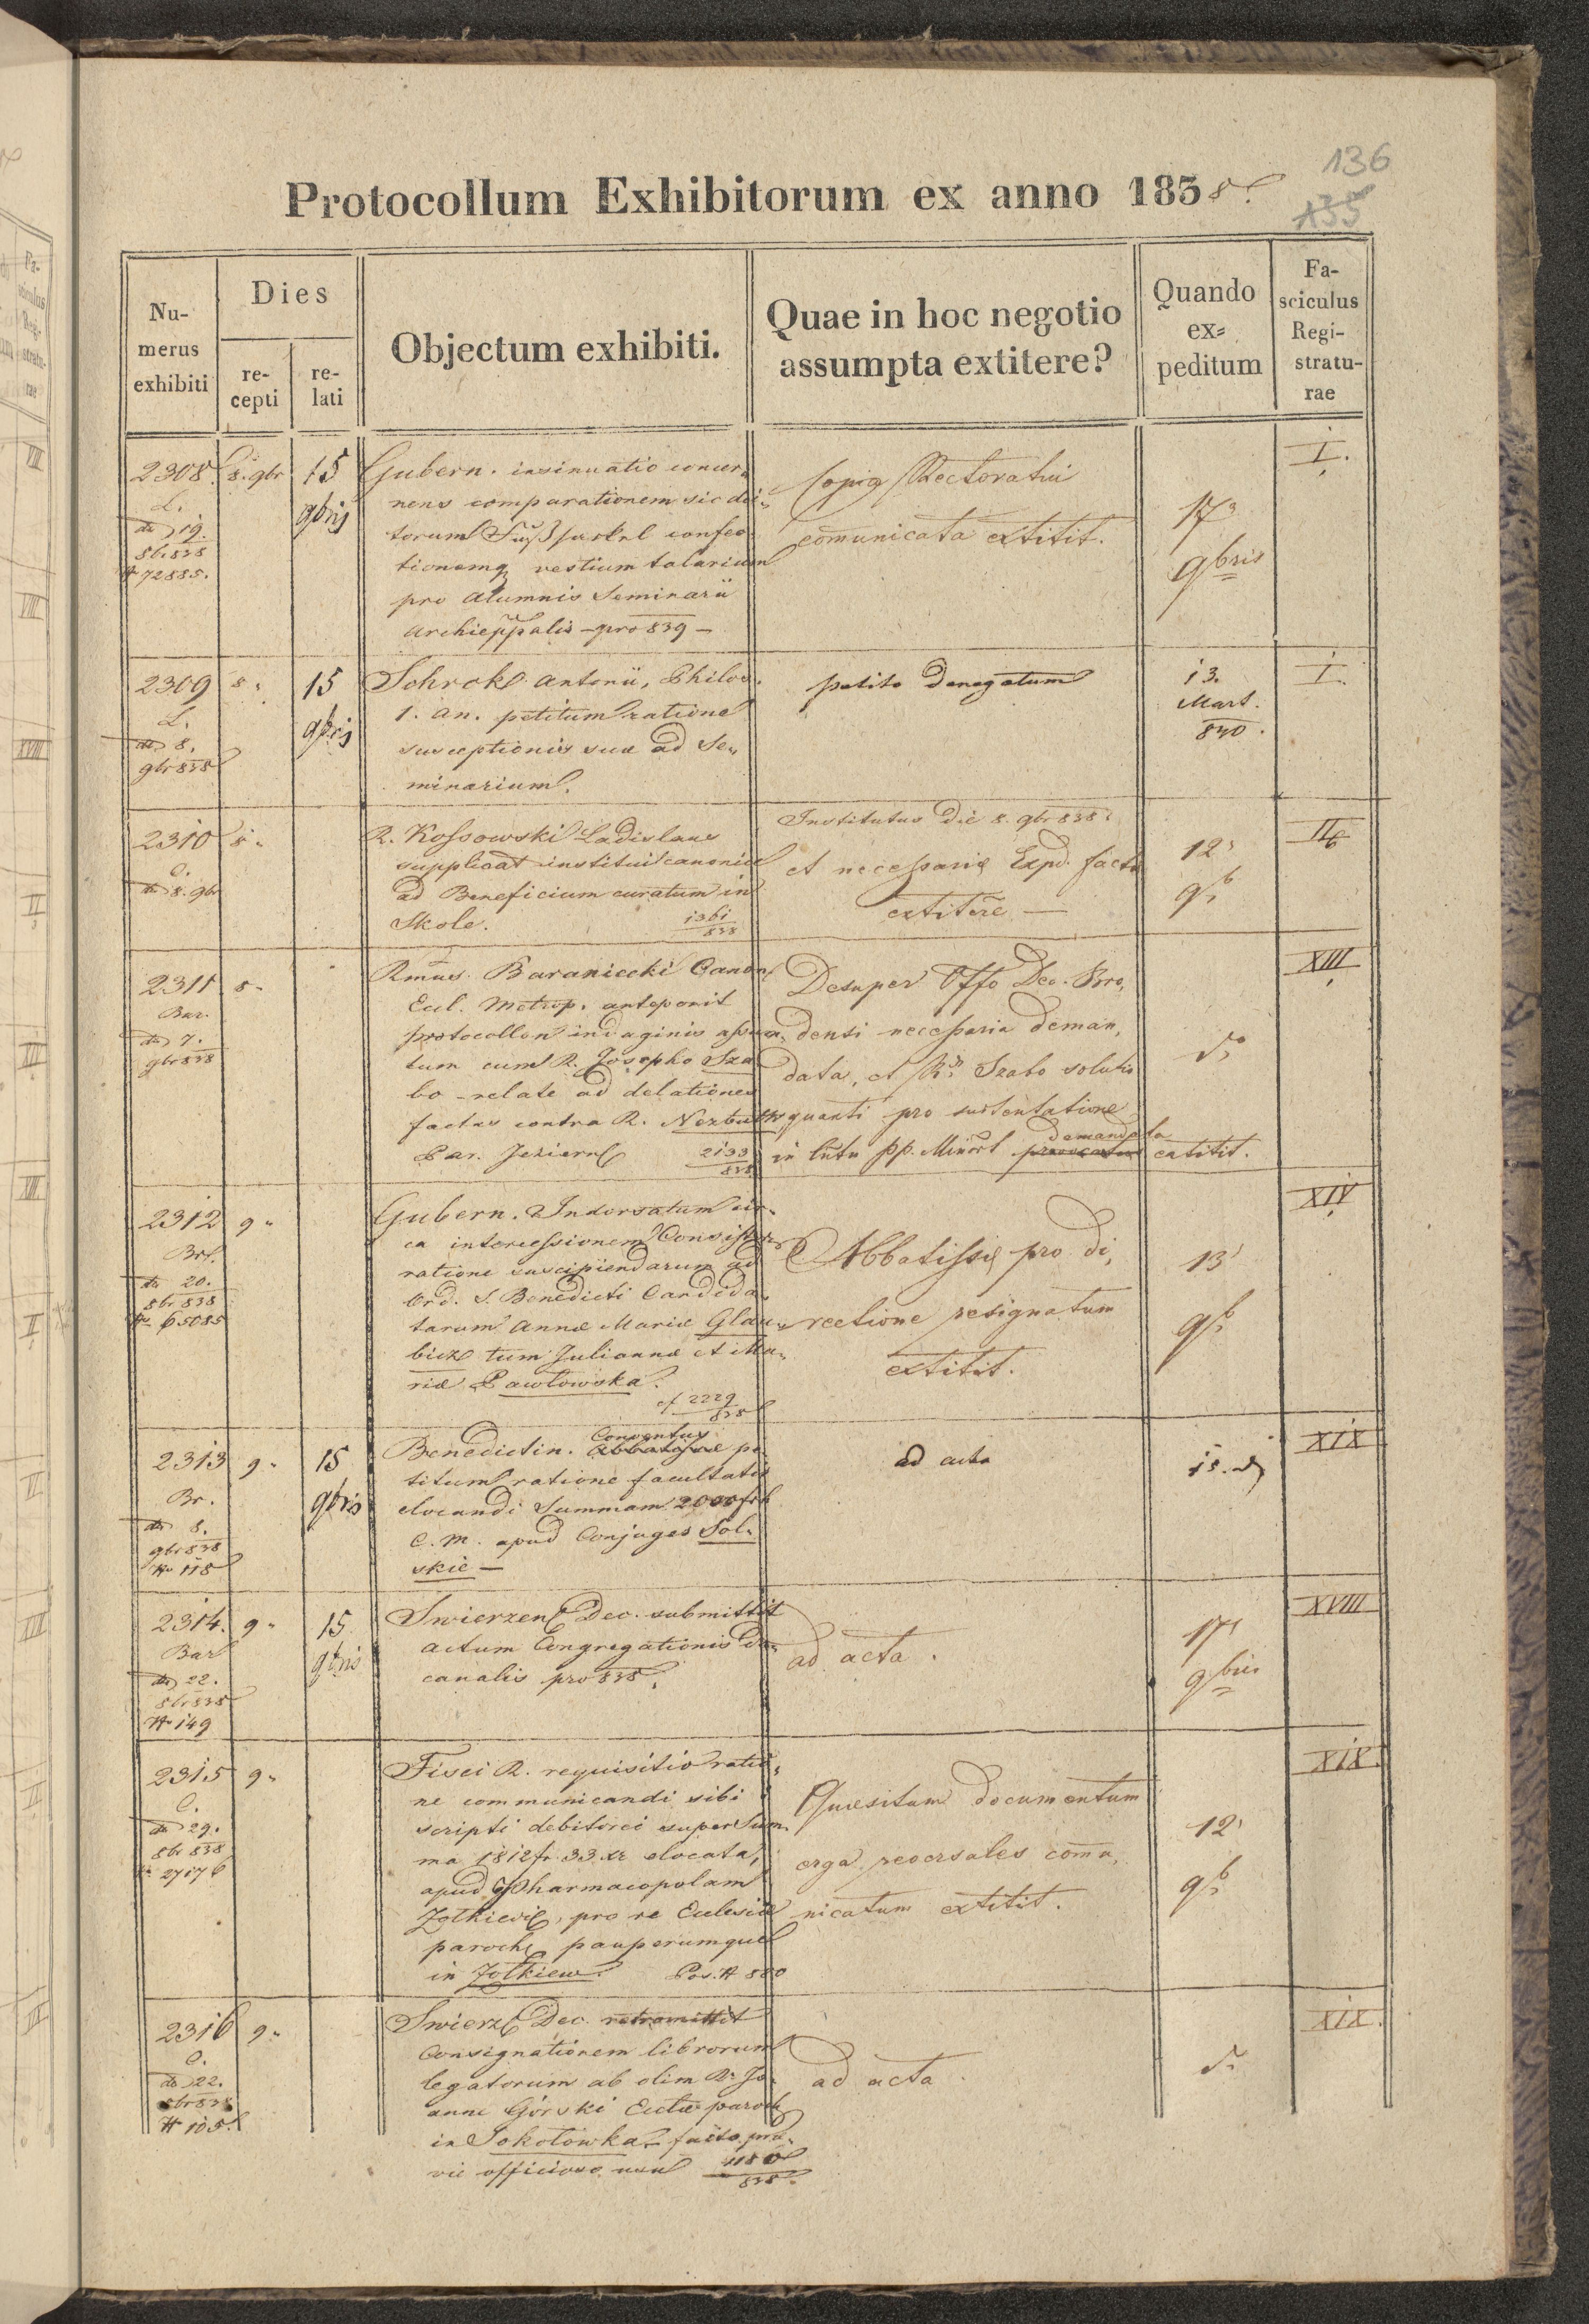 136
135
Protocollum Exhibitorum ex anno 1838.
Nu-
merus
exhibiti
Dies
re-
cepti
re-
lati
Objectum exhibiti.
Quae in hoc negotio
assumpta extitere?
Quando
ex=
peditum
Fa-
sciculus
Regi-
stratu-
rae
2308.
L.
dto 19.
8br 838
# 72885.
8. 9br
15
9bris
Gubern. insinuatio concer-
nens comparationem sic dic-
torum confec-
tionemq vestium talarium
pro alumnis Seminarii
archieppalis - pro 839 -
Copia Rectoratui
comunicata extitit.
17
9bris
I.
2309
L.
dto 8.
9br 838
8.
15
9bris
Schrok Antonii, Philos.
1. an. petitum ratione
susceptionis suae ad Se-
minarium.
petito denegatum
13.
Mart.
840.
I.
2310
C.
dto 8. 9br
8.
R. Kossowski Ladislaus
supplicat institui canonice
ad Beneficium curatum in
Skole.
1361
838
Institutus die 8. 9br 838.
et necessariae Exped. factae
extitere —
12
9b
II
2311
Bar.
dto 7.
9br 838
8.
Rmus. Baraniecki Canon
Eccl. Metrop. anteponit
protocollon indaginis assum-
tum cum R. Josepho Sza-
bo - relate ad delationes
factas contra R. Nerbuth
Par. Jeziern
2133
838
Desuper Offo Dec. Bro-
densi necessaria deman-
data, et Szabo
quanti pro sustentatione
in pp. Minor demandata
extitit.
do
XIII
2312
Brf.
dto 20.
8br 838
# 65085
9.
Gubern. Indorsatum cir-
ca intercessionem Consist.
ratione suscipiendarum ad
Ord. S. Benedicti Candida-
tarum Annae Mariae Glau-
bicz tum Juliannae et Ma-
riae Pawłowska.
cf 2229
838
Abbatissae pro di-
rectione resignatum
extitit.
13
9b
XIV
2313
Br.
dto 8.
9br 838
No 118
9.
15
9bris
Benedictin. Conventus
Abbatissae pe-
titum ratione facultatis
elocandi Summam 2000 fr
C. M. apud Conjuges Sol-
skie —
ad acta
15.
XIX
2314.
Bar
dto 22.
8br 838
No 149
9.
15
9bris
Swierzen Dec. submittit
actum Congregationis De-
canalis pro 838.
ad acta.
17
9bris
XVIII
2315
C.
dto 29.
8br 838
No 27176
9.
Fisci R. requisitio ratio-
ne communicandi sibi
scripti debitorei super Sum-
ma 1812 fr 33 xr elocata,
apud Pharmacopolam
Zolkiewie, pro re Ecclesiae
paroch pauperumque
in Zolkiew.
Pos. # 880
Quaesitum documentum
erga reversales comu-
nicatum extitit.
12
9b
XIX.
2316
C.
dto 22.
8br 838
# 105.
9.
Swierz Dec. retromittit
Consignationem librorum
legatorum ab olim R. Jo-
anne Górski Ecclae paroch
in Sokołówka - facto prae-
vie officioso usu
1180
838.
ad acta.
do
XIX.